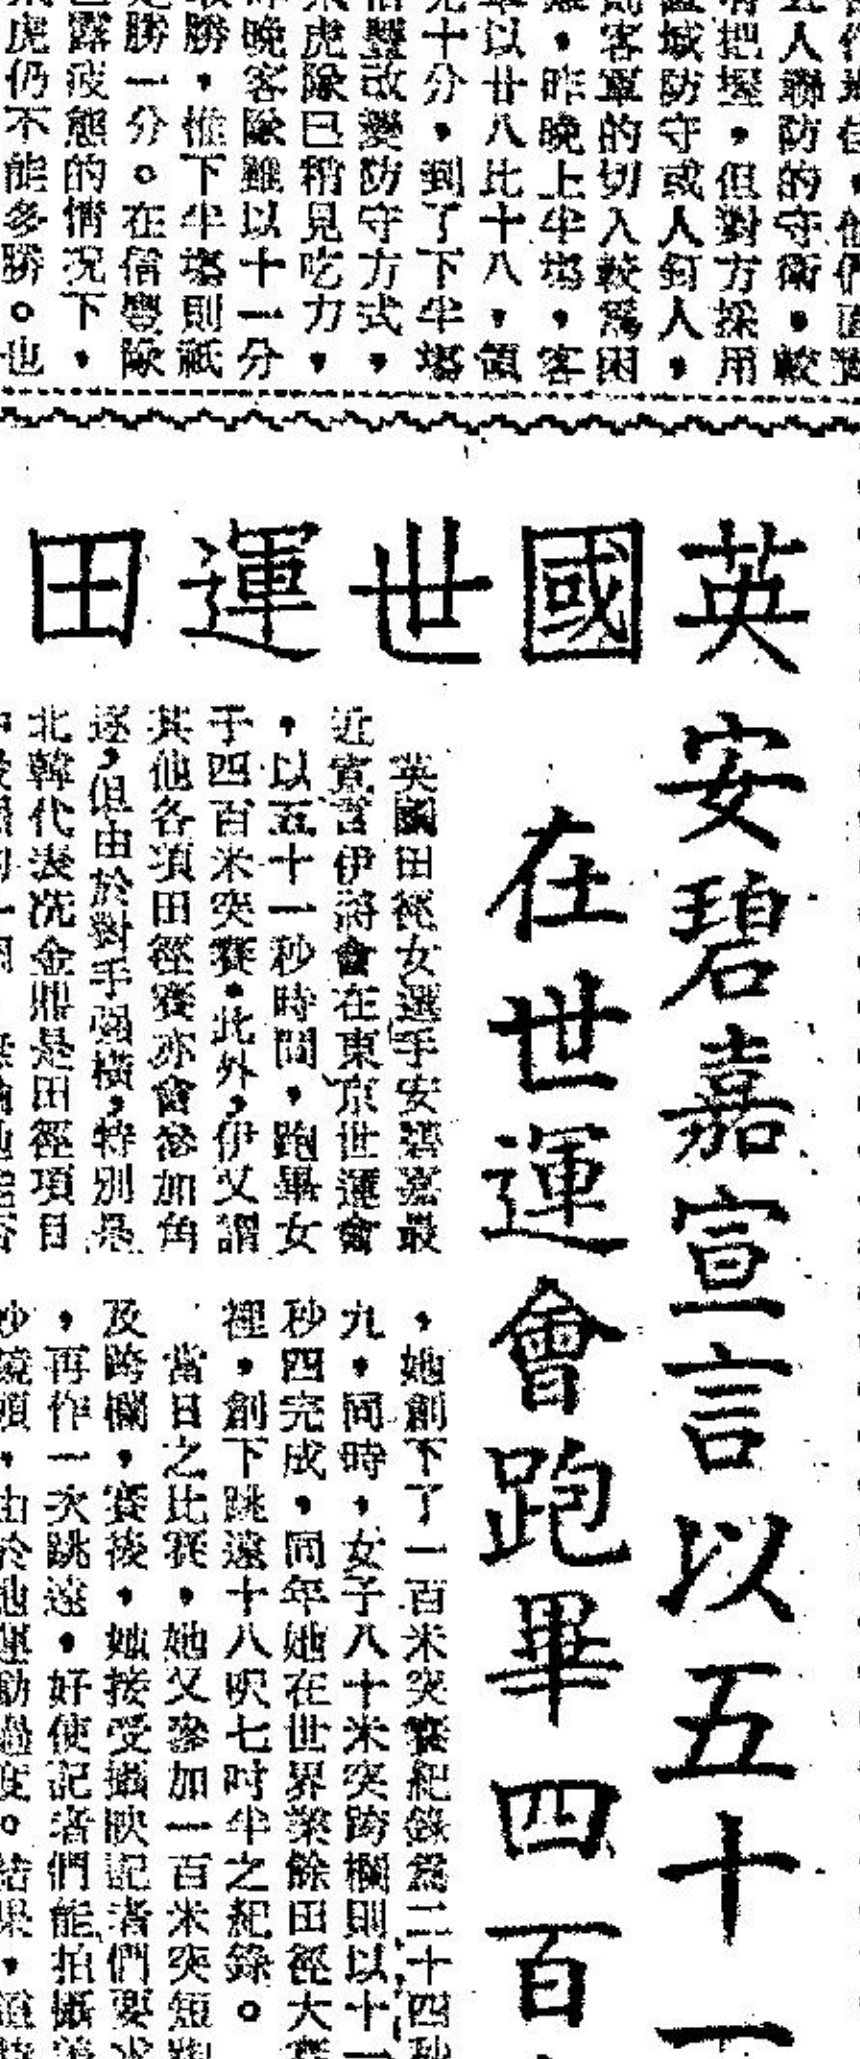 五人聯防的守衛,較
有把握,但對方採用
區域防守或人釘人,
則客軍的切入較爲困
難,昨晚上半塲,客
軍以廿八比十八,領
先十分,到了下半塲
信豐改變防守方式,
飛虎隊已稍見吃力,
昨晚客隊雖以十一分
取勝,惟下半塲則祇
是勝一分。在信豐隊
已露疲態的情況下,
飛虎仍不能多勝。也
英國世運田
安碧嘉宣言以五十一
在世運會跑畢四百
英國田徑女選手安碧嘉最
近宣言伊將會在東京世運會
,以五十一秒時間,跑畢女
子四百米突賽。此外,伊又謂
其他各項田徑賽亦會參加角
逐,但由於對手强橫,特別是
北韓代表冼金鼎是田徑項目
,她創下了一百米突賽紀錄爲二十四秒
九,同時,女子八十米突跨欄則以十一
秒四完成,同年她在世界業餘田徑大賽
裡,創下跳遠十八呎七吋半之紀錄。
當日之比賽,她又參加一百米突短跑
及跨欄,賽後,她接受攝映記者們要求
,再作一次跳遠,好使記者們能拍攝
鏡頭,由於她運動過度。結果,